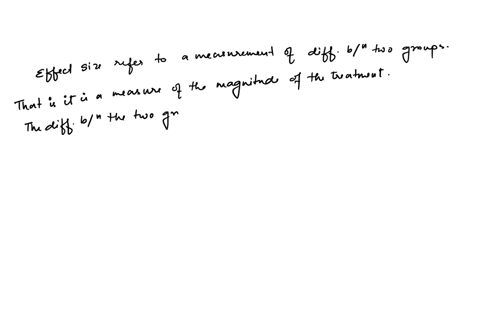 Effect size refers to a measurement of diff. b/n two groups.
That is it is a measure of the magnitude of the treatment.
The diff. b/n the two gr